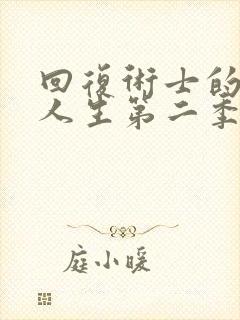 回復術士的
人生第二季
庭小暖